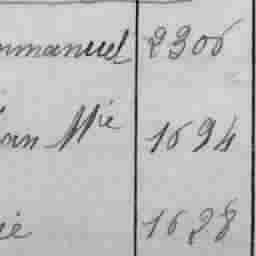 mmanuel 2306
ean Mie 1694
ie 1628